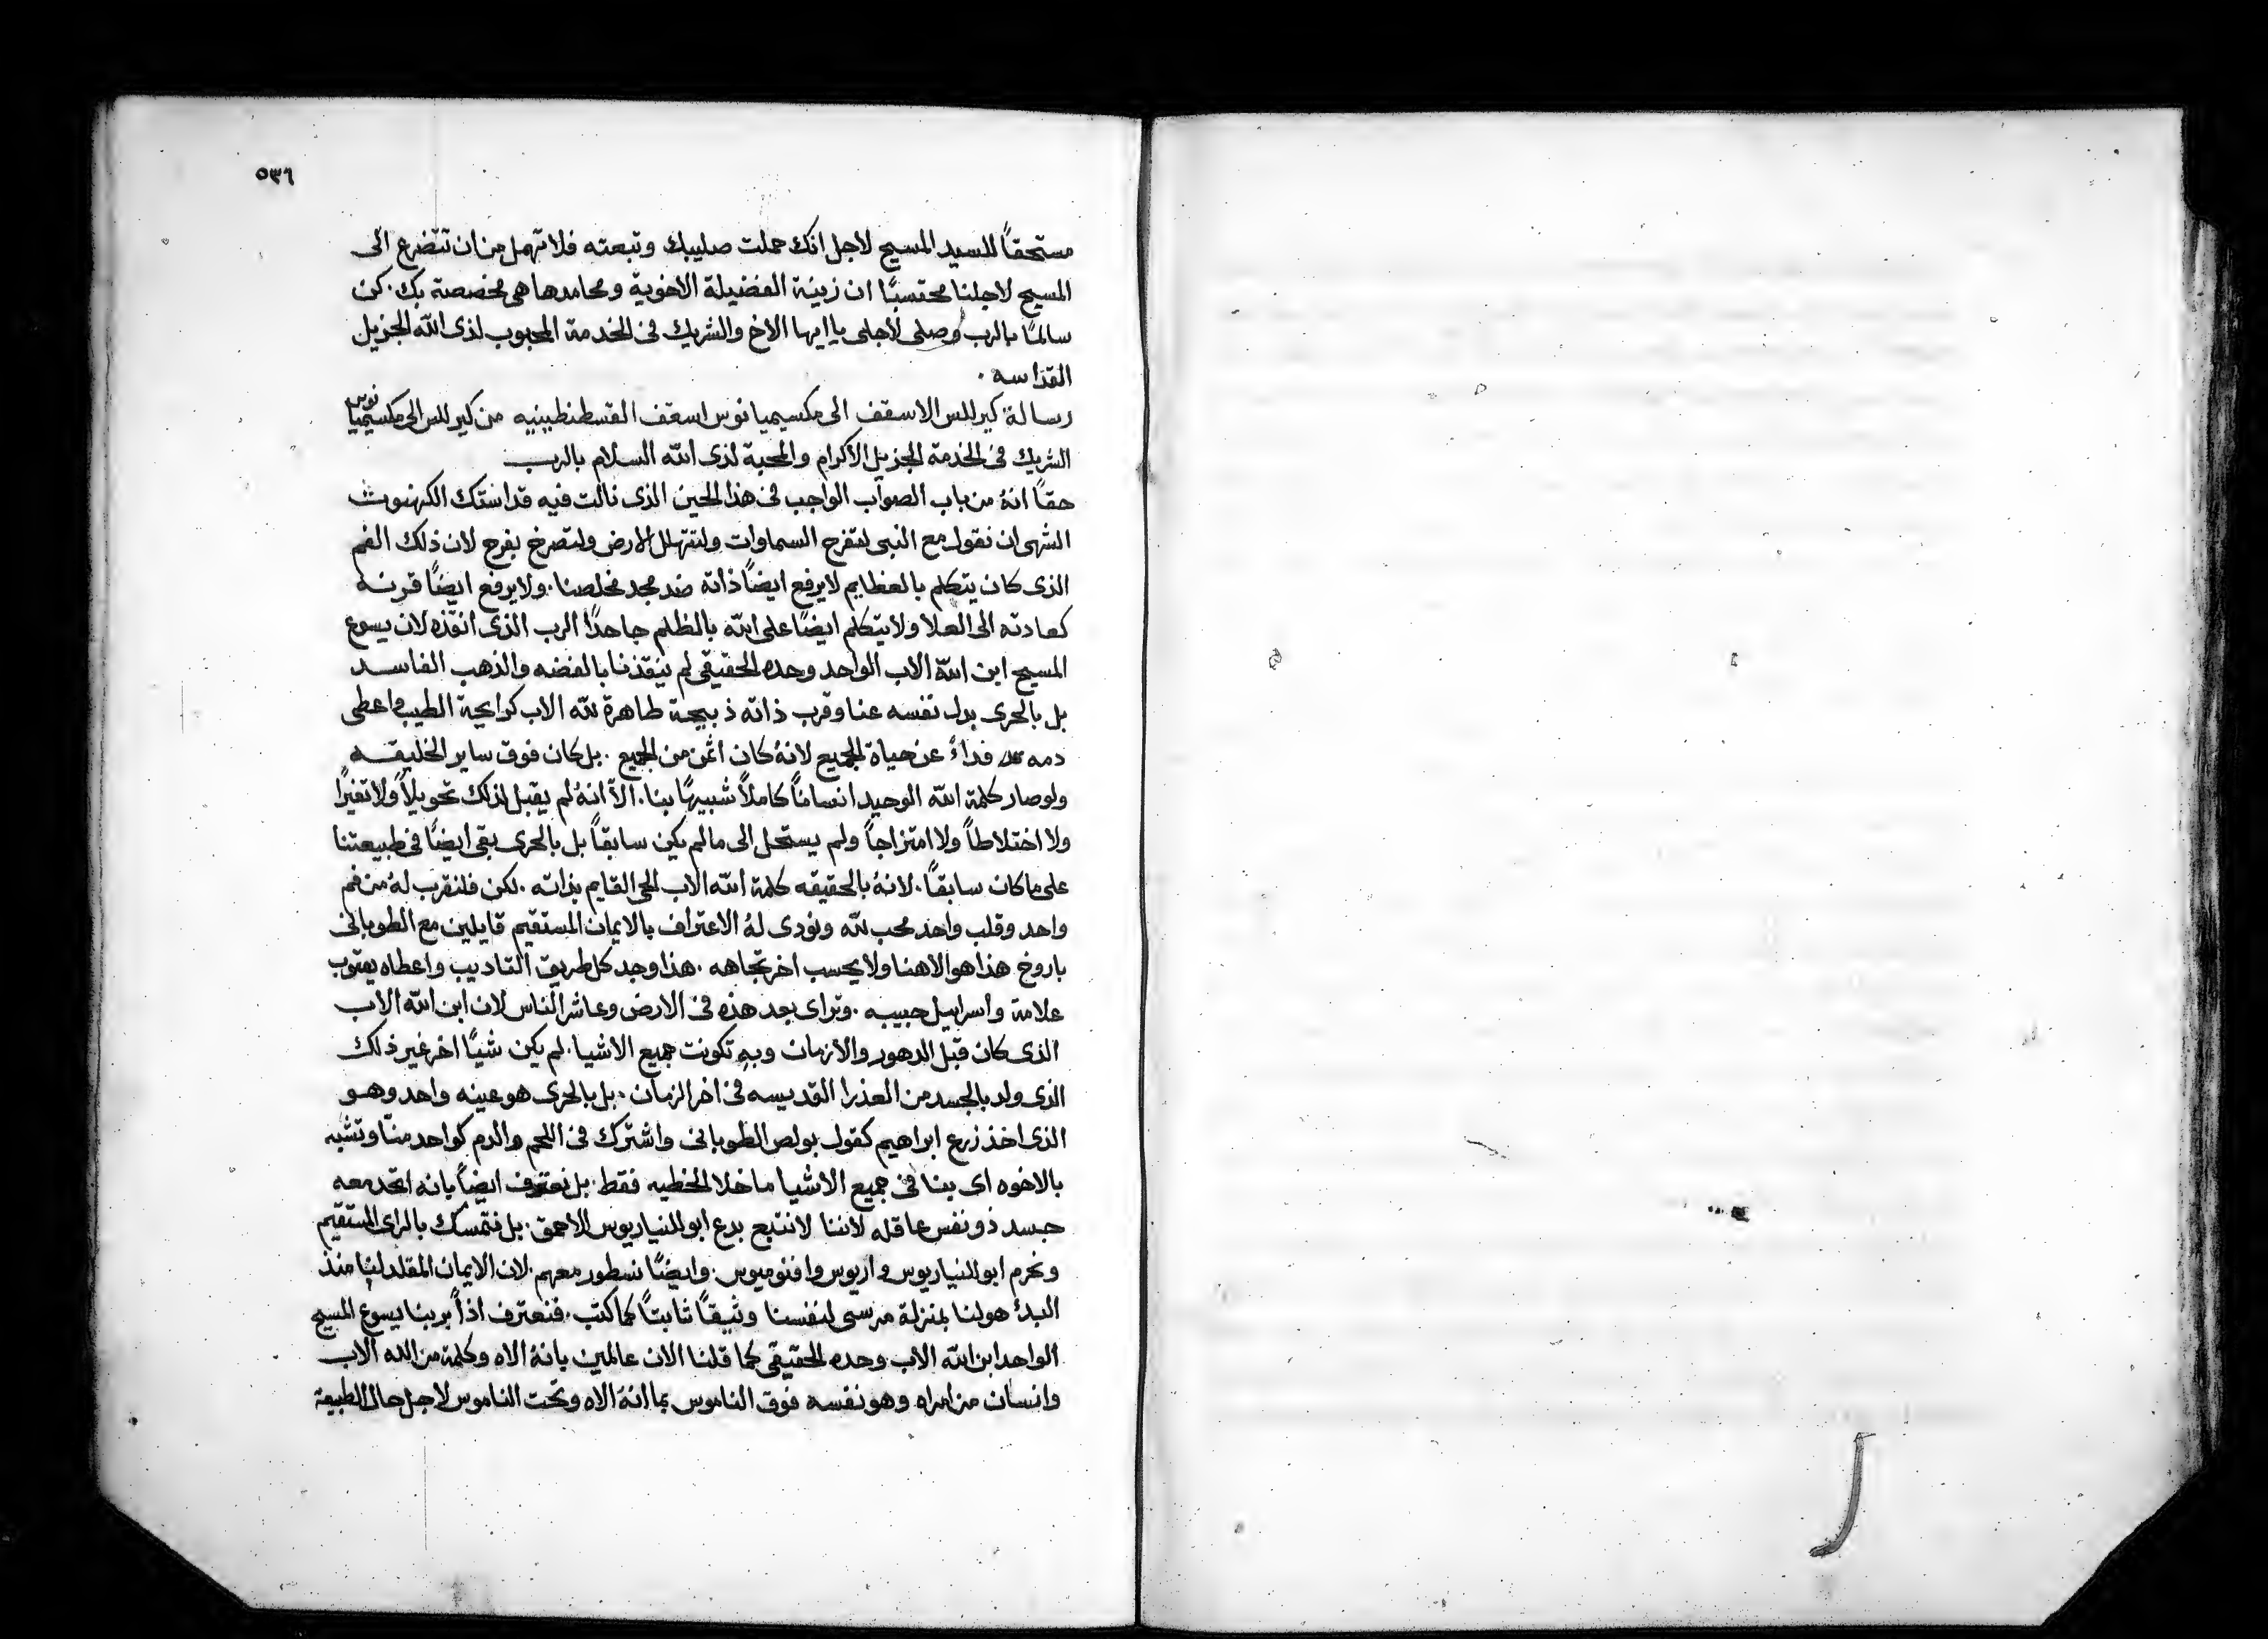 ٥٣٦
مستحقاً للسيد المسيح لاجل انك حملت صليبك وتبعته فلا تهمل من ان تتضرع الى
المسيح لاجلنا محتسبًا ان زينة الفضيلة الاخوية ومحامدها هى مخصصة بك. كن
سالمًا بالرب وصلى لأجلى يا ايها الاخ والشريك فى الخدمة المحبوب لذى الله الجزيل
القداسه .
رسالة كيرللس الاسقف الى مكسيميانوس اسقف القسطنطينيه من كيرللس الى مكسيميانوس
الشريك فى الخدمة الجزيل الاكرام والمحبة لذى الله السلام بالرب
حقاً انهُ من باب الصواب الواجب فى هذا الحين الذى نالت فيه قداستك الكهنوت
الشهى ان نقول مع النبى لتفرح السماوات ولتتهلل الارض ولتصرخ بفرح لان ذلك الفم
الذى كان يتكلم بالعظايم لا يرفع ايضاً ذاته ضد مجد مخلصنا. ولا يرفع ايضاً قرنه
كعادته الى العلا ولا يتكلم ايضًا على الله بالظلم جاحدًا الرب الذى انقذه لان يسوع
المسيح ابن الله الاب الواحد وحده الحقيقى لم ينقذنا بالفضه والذهب الفاسد
بل بالحرى بدل نفسه عنا وقرب ذاته ذبيحة طاهرة لله الاب كرايحة الطيب واعطى
دمه فداءً عن حياة الجميع لانهُ كان اثمن من الجميع . بل كان فوق ساير الخليقه
ولو صار كلمة الله الوحيد انسانًا كاملاً شبيهًا بنا. الاّ انهُ لم يقبل لذلك تحويلاً ولا تغيرًا
ولا اختلاطاً ولا امتزاجاً ولم يستحل الى ما لم يكن سابقاً بل بالحرى بقى ايضًا فى طبيعتنا
على ما كان سابقاً. لانهُ بالحقيقه كلمة الله الاب الحى القايم بذاته . لكن فلنقرب لهُ من فم
واحد وقلب واحد محب لله ونودى لهُ الاعتراف بالايمان المستقيم قايلين مع الطوبانى
باروخ هذا هو الاهنا ولا يحسب اخر تجاهه . هذا وجد كل طريق التاديب واعطاه يعقوب
علامة واسراييل حبيبه . وتراى بعد هذه فى الارض وعاشر الناس لان ابن الله الاب
الذى كان قبل الدهور والازمان وبهِ تكونت جميع الاشيا. لم يكن شيًا اخر غير ذلك
الذى ولد بالجسد من العذرا القديسه فى اخر الزمان . بل بالحرى هو عينه واحد وهو
الذى اخذ زرع ابراهيم كقول بولص الطوبانى واشترك فى اللحم والدم كواحد منّا وتشبه
بالاخوه اى بنا فى جميع الاشيا ما خلا الخطيه فقط . بل نعترف ايضاً بانه اتحد معه
جسد ذو نفس عاقله لاننا لا نتبع بدع ابوللنياريوس الاحمق . بل نتمسك بالراى المستقيم
ونحرم ابوللنياريوس واريوس وافنوميوس. وايضًا نسطور معهم. لان الايمان المقلد لنا منذ
البدءُ هو لنا بمنزلة مرسى لنفسنا وثيقًا ثابتًا كما كتب . فنعترف اذاً بربنا يسوع المسيح
الواحد ابن الله الاب وحده الحقيقى كما قلنا الان عالمين بانهُ الاه وكلمة من الله الاب
وانسان من امراه وهو نفسه فوق الناموس بما انهُ الاه وتحت الناموس لاجل حال الطبيعة